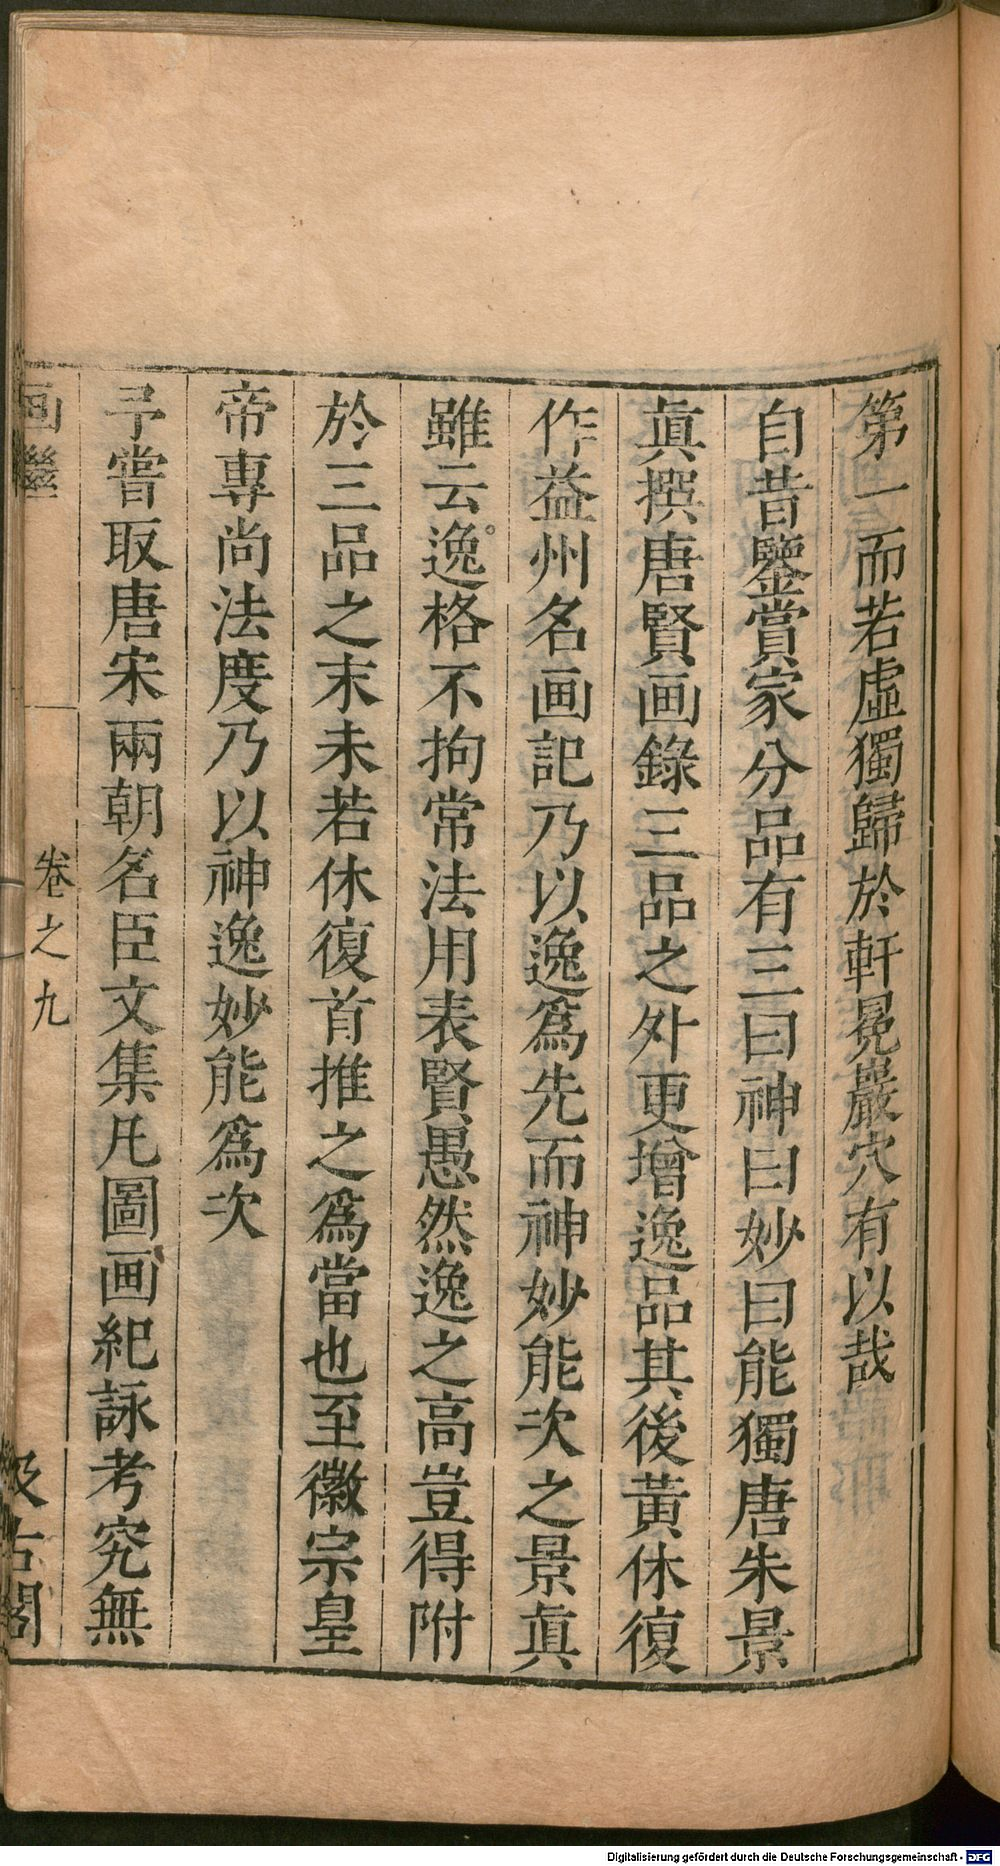 第一而若虛獨歸於軒冕巖穴有以哉
自昔鑒賞家分品有三曰神曰妙曰能獨唐朱景
眞撰唐賢画錄三品之外更增逸品其後黃休復
作益州名画記乃以逸爲先而神妙能次之景眞
雖云逸格不拘常法用表賢愚然逸之高豈得附
於三品之末未若休復首推之爲當也至徽宗皇
帝專尚法度乃以神逸妙能爲次
予嘗取唐宋兩朝名臣文集凡圖画紀詠考究無
画繼
卷之九
汲古閣
Digitalisierung gefördert durch die Deutsche Forschungsgemeinschaft - DFG